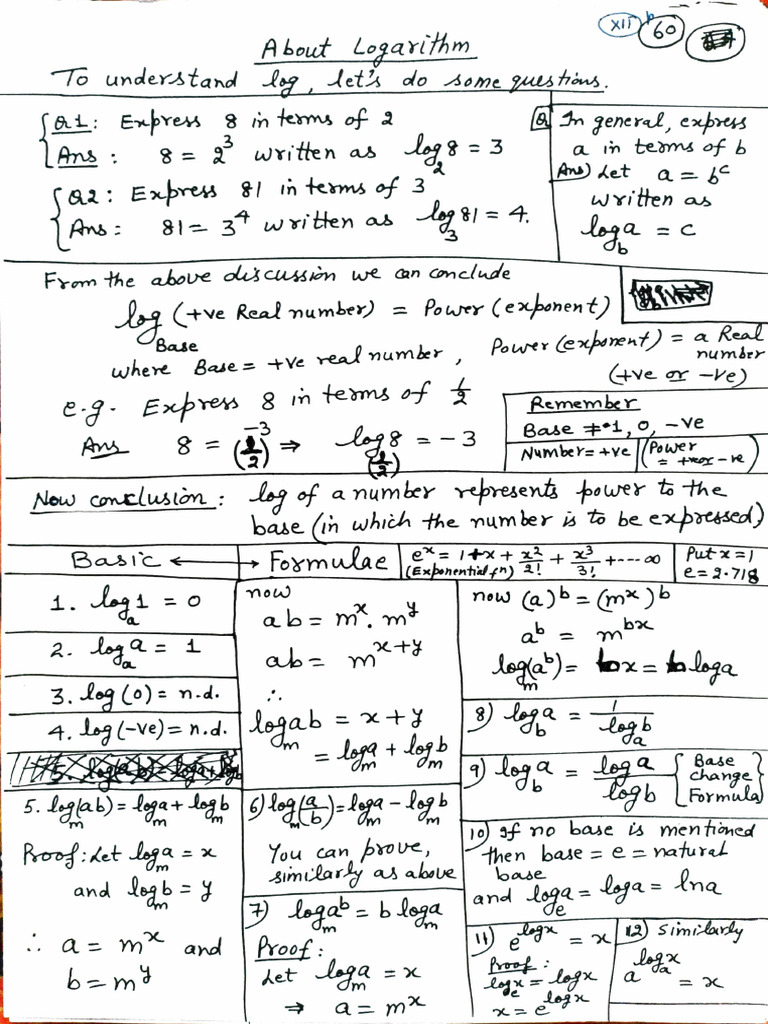 XII b 60
About Logarithm
To understand log, let's do some questions.
Q1: Express 8 in terms of 2
Ans: 8 = 2³ written as log₂8 = 3
Q2: Express 81 in terms of 3
Ans: 81 = 3⁴ written as log₃81 = 4.
Q In general, express
a in terms of b
Ans) Let a = b^c
written as
log_b a = c
From the above discussion we can conclude
log_Base (+ve Real number) = Power (exponent)
where Base = +ve real number, Power (exponent) = a Real number
(+ve or -ve)
e.g. Express 8 in terms of 1/2
Ans 8 = (1/2)^-3 ⇒ log_(1/2) 8 = -3
Remember
Base ≠ 1, 0, -ve
Number = +ve (Power = +ve or -ve)
Now conclusion: log of a number represents power to the
base (in which the number is to be expressed)
Basic ↔ Formulae
e^x = 1 + x + x²/2! + x³/3! + ---- ∞
(Exponential fⁿ)
Put x = 1
e = 2.718
1. log_a 1 = 0
2. log_a a = 1
3. log(0) = n.d.
4. log(-ve) = n.d.
5. log_m(ab) = log_m a + log_m b
Proof: Let log_m a = x
and log_m b = y
∴ a = m^x and
b = m^y
now
ab = m^x . m^y
ab = m^(x+y)
∴
log_m ab = x + y
= log_m a + log_m b
6) log_m(a/b) = log_m a - log_m b
You can prove,
similarly as above
7) log_m a^b = b log_m a
Proof:
Let log_m a = x
⇒ a = m^x
now (a)^b = (m^x)^b
a^b = m^bx
log_m(a^b) = bx = b log a
8) log_b a = 1/log_a b
9) log_b a = log a/log b {Base change Formula}
10) If no base is mentioned
then base = e = natural
base
and log_e a = log a = ln a
11) e^(log x) = x
Proof:
log_e x = log x
x = e^(log x)
12) similarly
a^(log_a x) = x